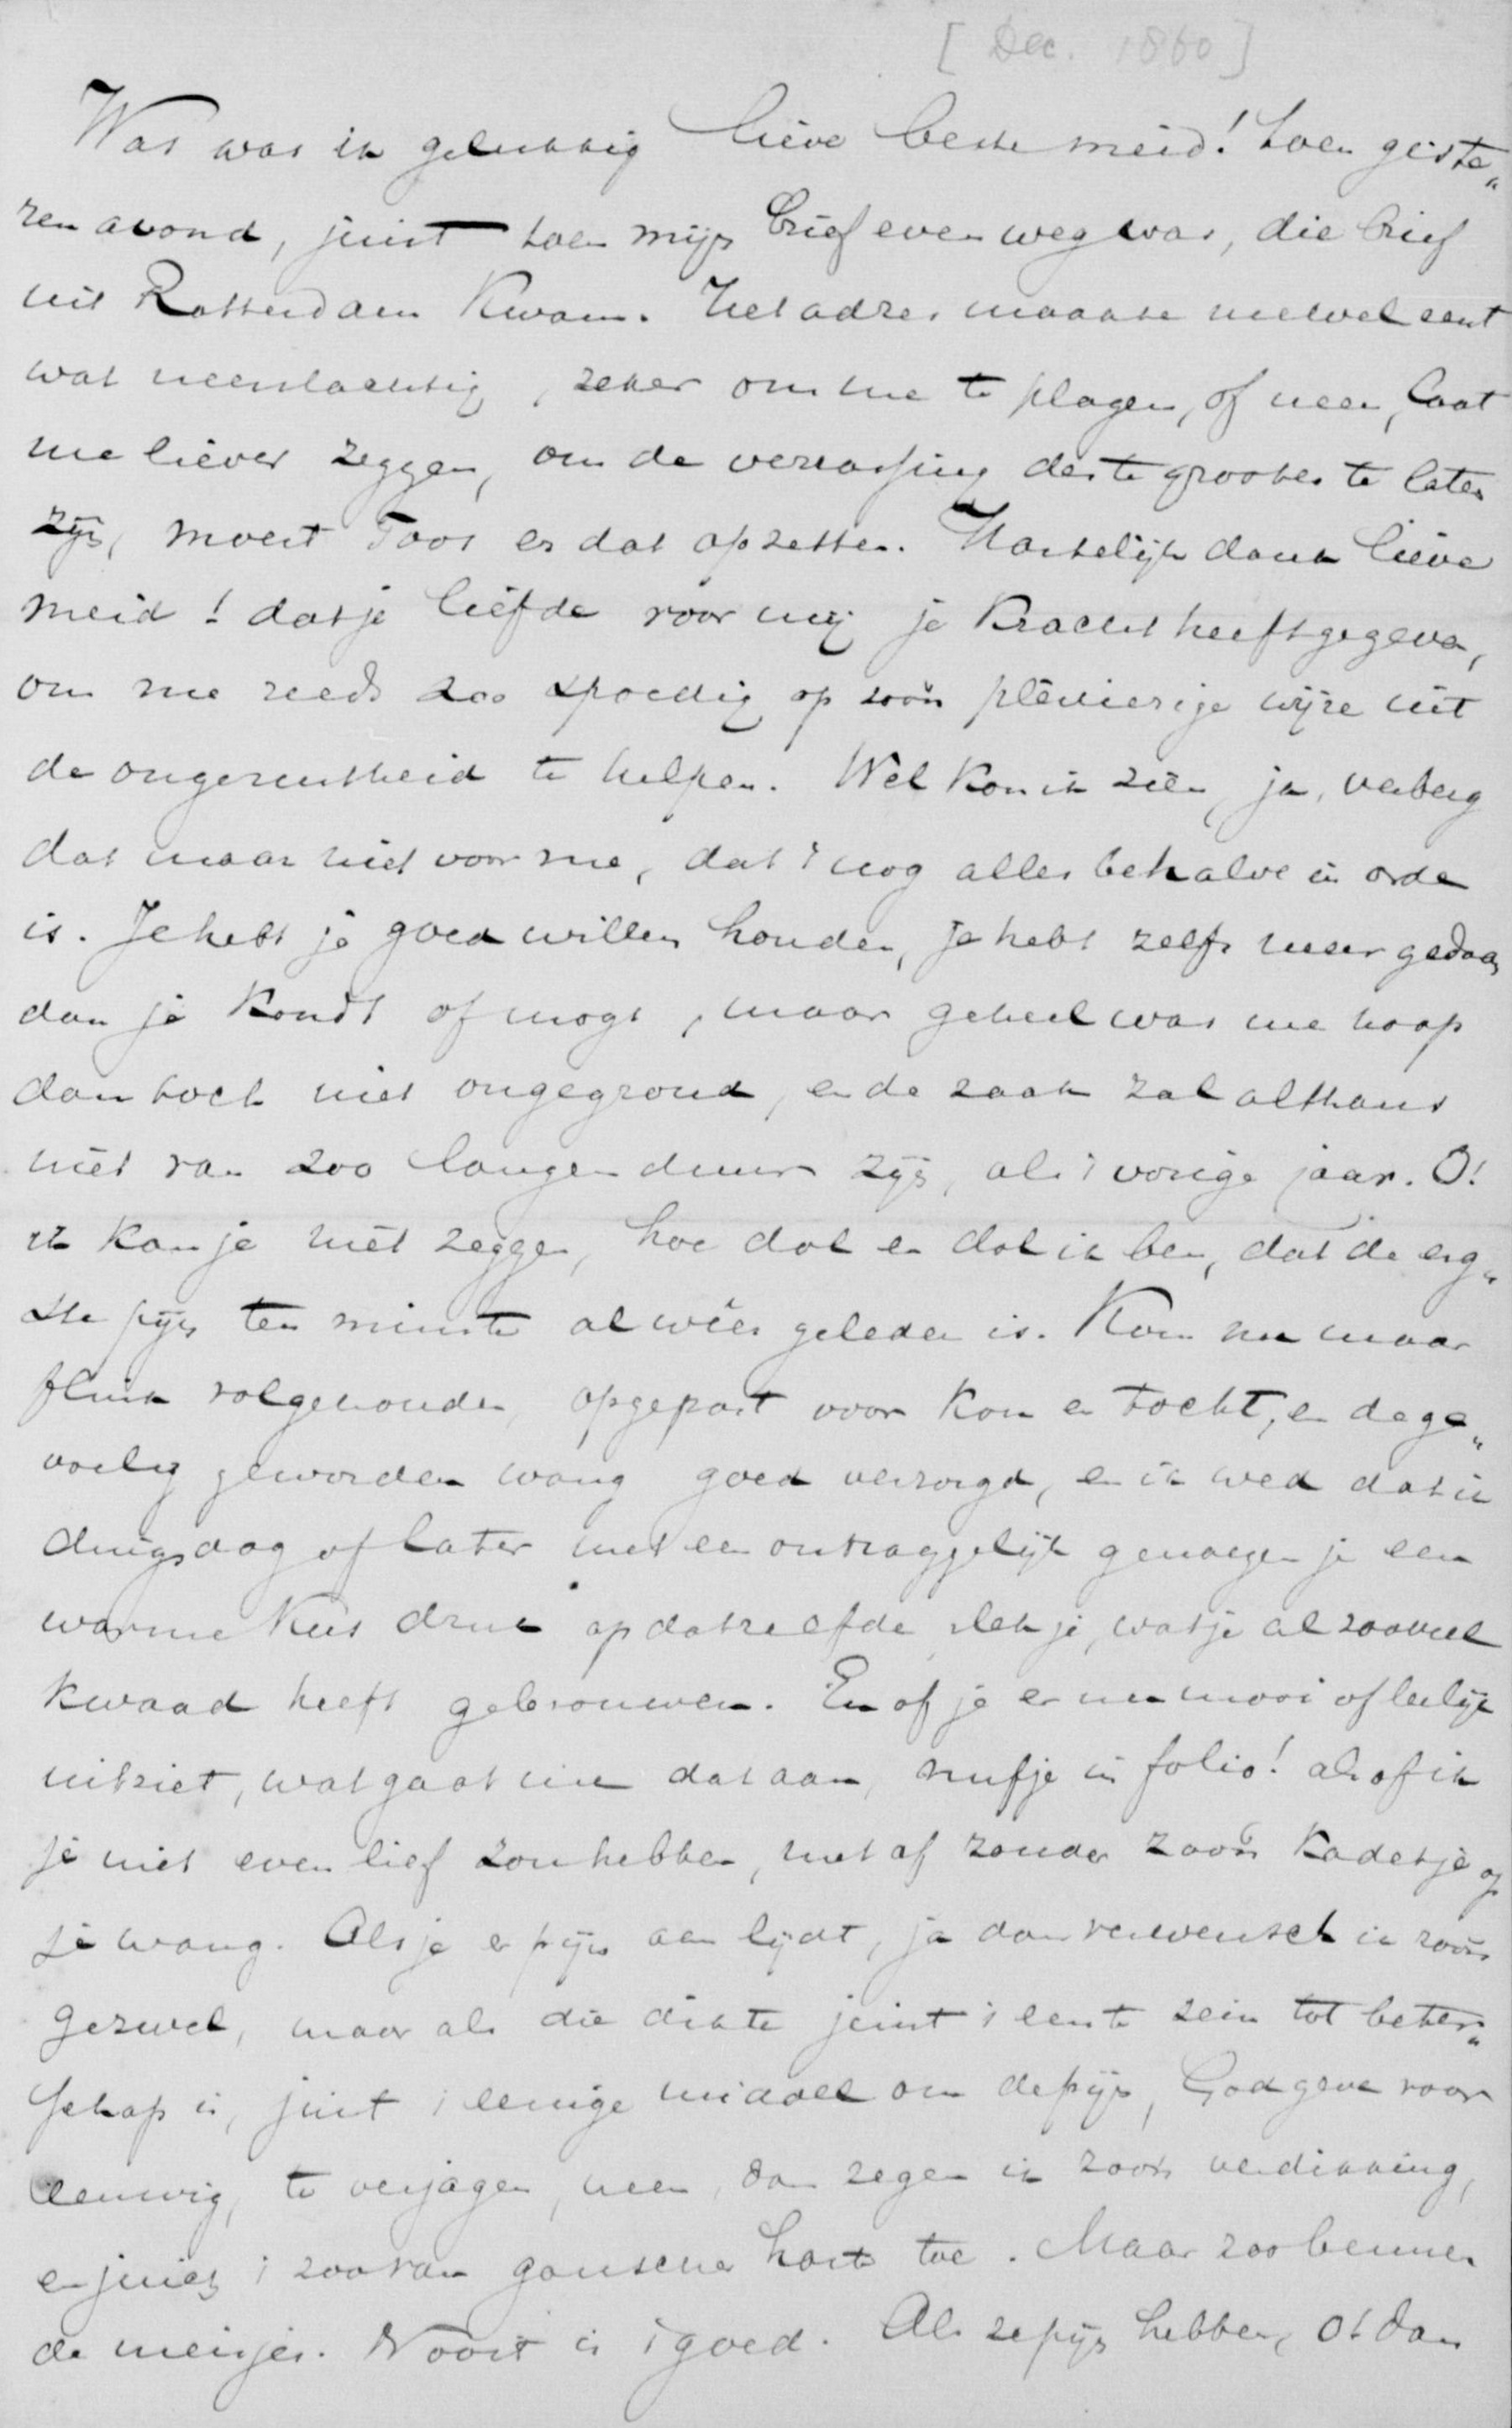 [Dec. 1860]
Wat was ik gelukkig lieve beste meid! toen giste„
ren avond, juist toen mijn brief even weg was, die brief
uit Rotterdam kwam. Het adres maakte me wel eerst
wat neerslachtig, zeker om me te plagen, of neen, laat
me liever zeggen, om de verrassing des te grooter te laten
zijn, moest Toos er dat opzetten. Hartelijk dank lieve
meid! dat je liefde voor mij je kracht heeft gegeven,
om me reeds zoo spoedig op zoo'n plèizierige wijze uit
de ongerustheid te helpen. Wel kon ik zien, ja, verberg
dat maar niet voor me, dat 't nog alles behalve in orde
is. Je hebt je goed willen houden, je hebt zelfs meer gedaan
dan je kondt of mogt, maar geheel was me hoop
dan toch niet ongegrond, en de zaak zal althans
niet van zoo langen duur zijn, als 't vorige jaar. O!
ik kan je niet zeggen, hoe dol en dol ik ben, dat de erg„
ste pijn ten minste al wéér geleden is. Kom nu maar
flink volgehouden, opgepast voor kou en tocht, en de ge„
voelig geworden wang goed verzorgd, en ik wed dat ik
dingsdag of later met een onzeggelijk genoegen je een
warme kus druk op datzelfde plekje, wat je al zooveel
kwaad heeft gebrouwen. En of je er nu mooi of leelijk
uitziet, wat gaat me dat aan, nufje in folio! alsof ik
je niet even lief zou hebben, met of zonder zoo'n kadetje op
je wang. Als je er pijn aan lijdt, ja dan verwensch ik zoo'n
gezwel, maar als die dikte juist 't eerste sein tot beter„
schap is, juist 't eenige middel om de pijn, God geve voor
eeuwig, te verjagen, neen, dan zegen ik zoo'n verdikking,
en juich 't zoo van ganscher harte toe. Maar zoo bennen
de meisjes. Nooit is 't goed. Als ze pijn hebben, ot dan